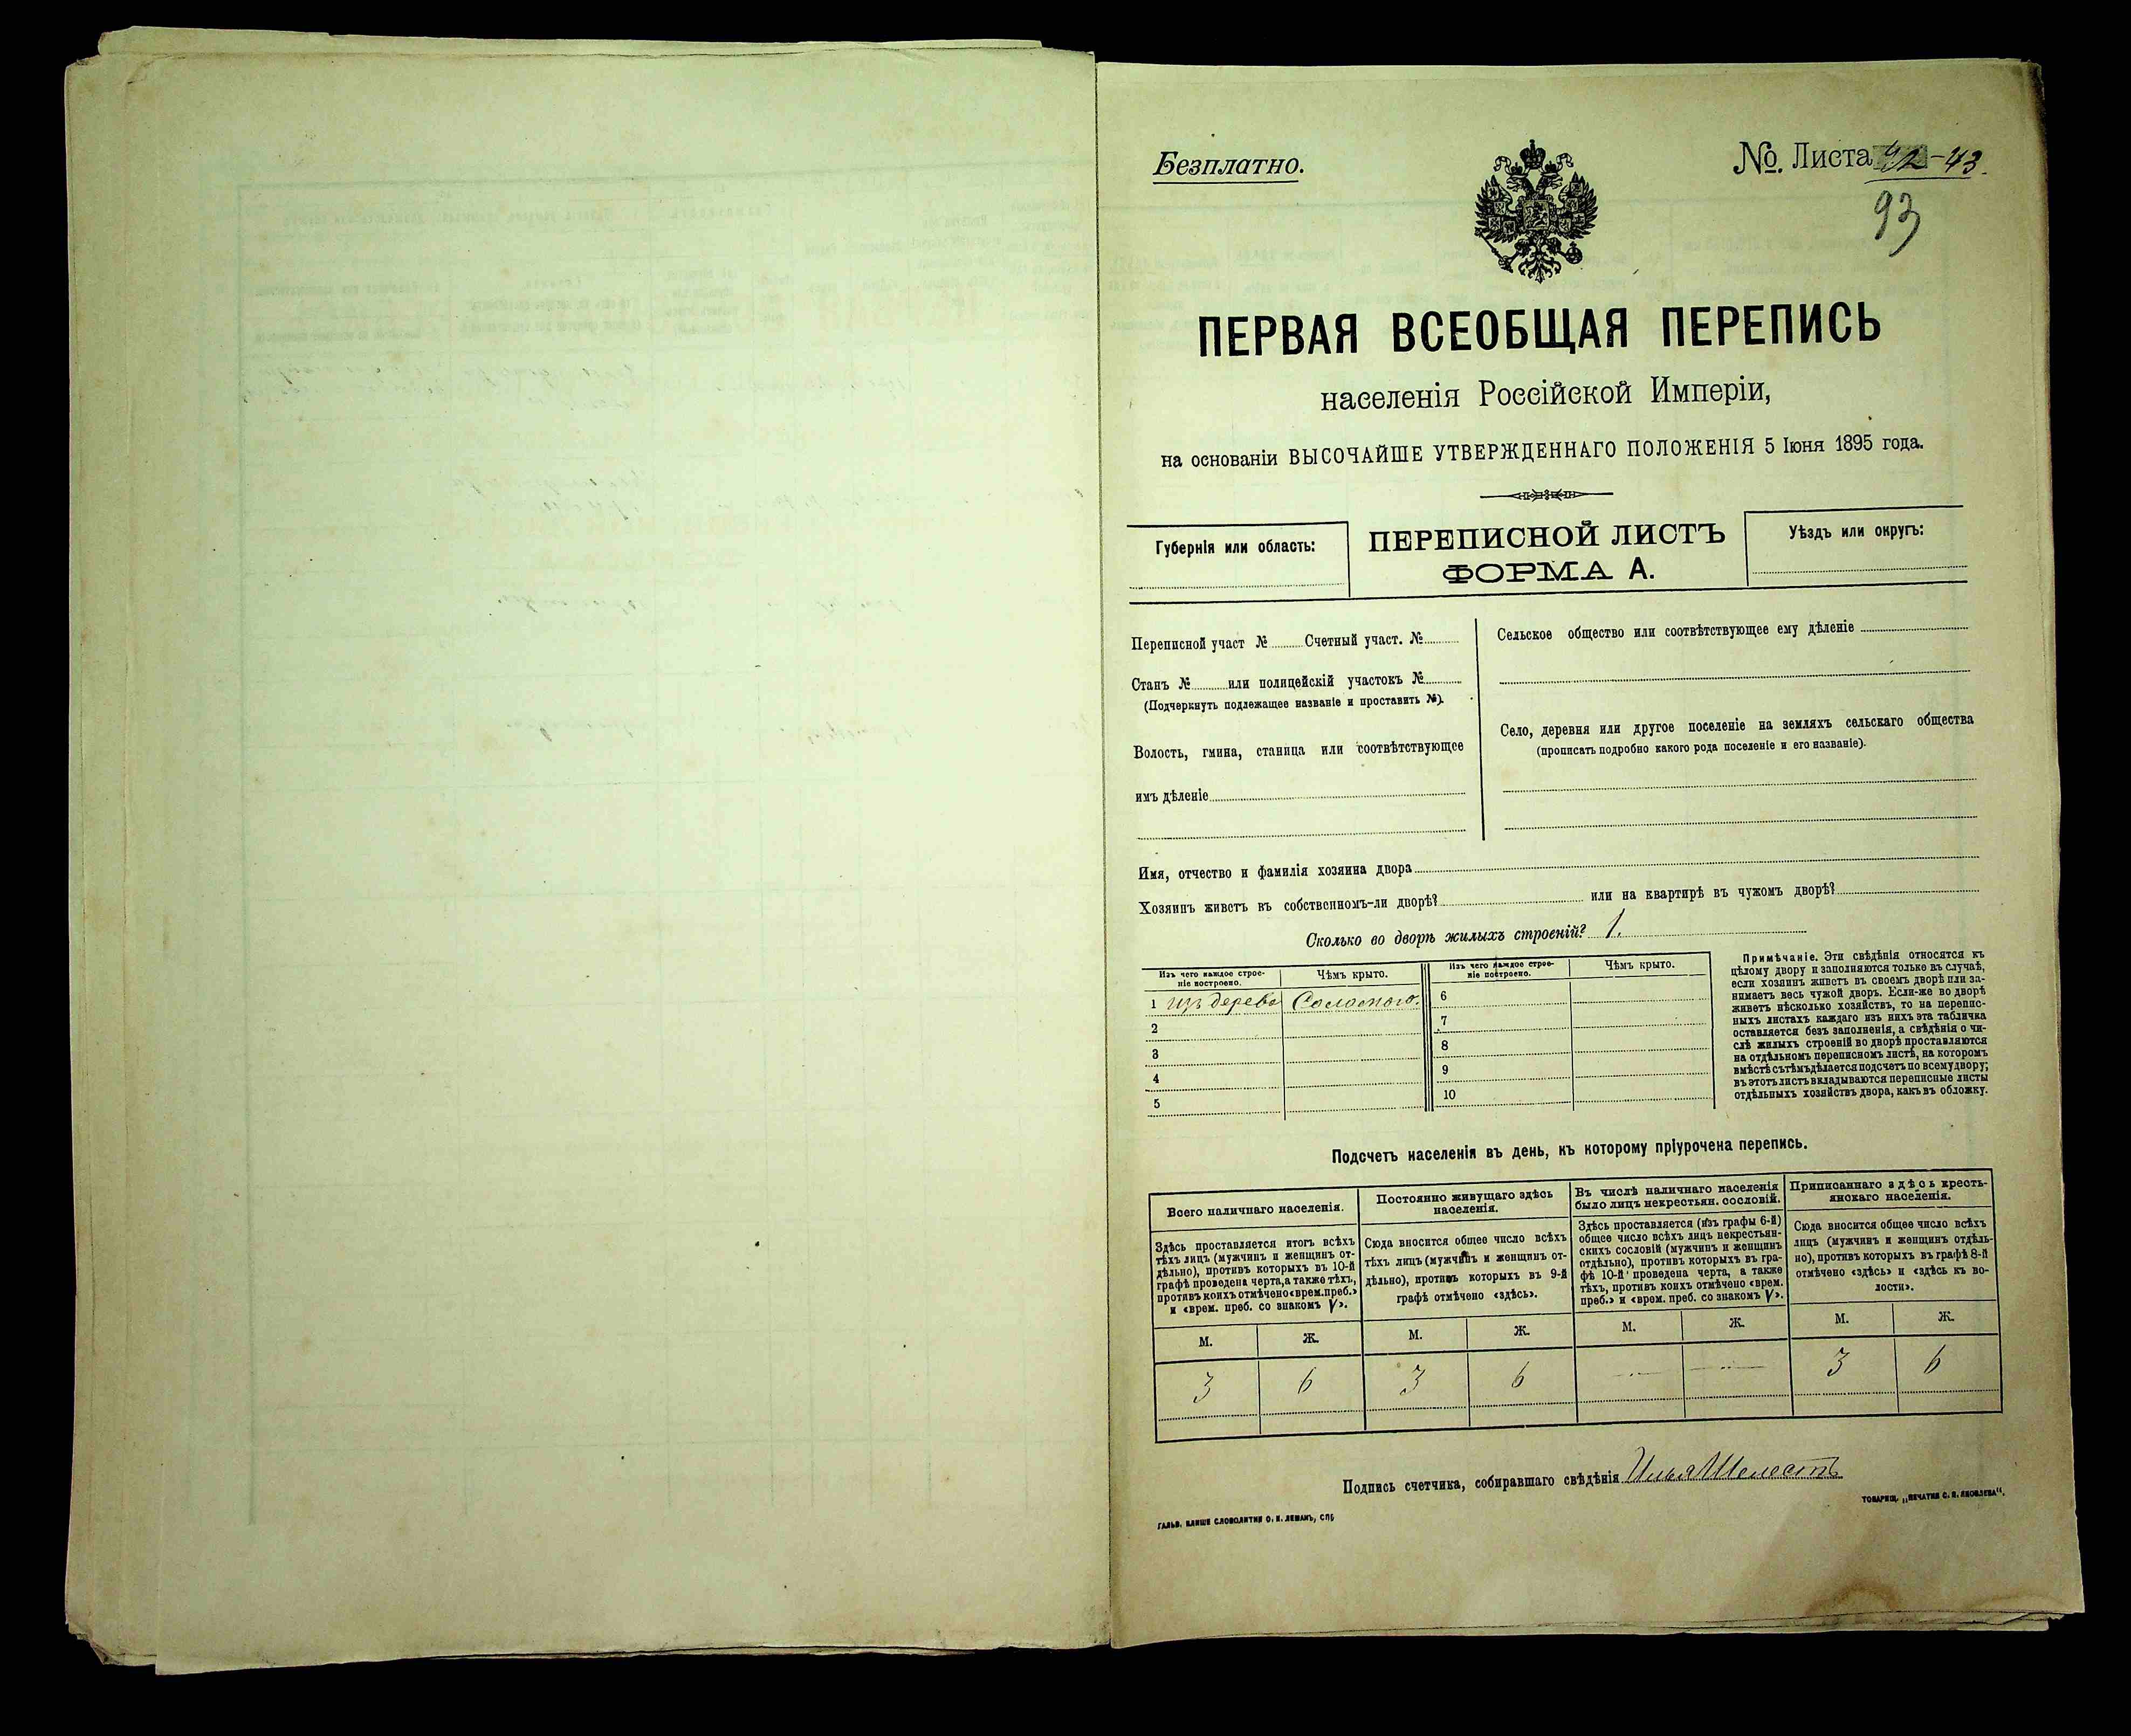 Безплатно.
№ Листа 42-43.
93
ПЕРВАЯ ВСЕОБЩАЯ ПЕРЕПИСЬ
населенія Россійской Имперіи,
на основаніи ВЫСОЧАЙШЕ УТВЕРЖДЕННАГО ПОЛОЖЕНІЯ 5 Іюня 1895 года.
Губернія или область:
ПЕРЕПИСНОЙ ЛИСТЪ
ФОРМА А.
Уѣздъ или округъ:
Переписной участ № Счетный участ. №
Станъ № или полицейскій участокъ №
(Подчеркнуть подлежащее названіе и проставить №).
Волость, гмина, станица или соотвѣтствующее
имъ дѣленіе
Сельское общество или соотвѣтствующее ему дѣленіе
Село, деревня или другое поселеніе на земляхъ сельскаго общества
(прописать подробно какого рода поселеніе и его названіе).
Имя, отчество и фамилія хозяина двора
Хозяинъ живетъ въ собственномъ-ли дворѣ? или на квартирѣ въ чужомъ дворѣ?
Сколько во дворѣ жилыхъ строеній? 1.
Изъ чего каждое строе-
ніе построено.
Чѣмъ крыто.
Изъ чего каждое строе-
ніе построено.
Чѣмъ крыто.
1 изъ дерева Соломою. 6
2 7
3 8
4 9
5 10
Примѣчаніе. Эти свѣдѣнія относятся къ
цѣлому двору и заполняются только въ случаѣ,
если хозяинъ живетъ въ своемъ дворѣ или за-
нимаетъ весь чужой дворъ. Если-же во дворѣ
живетъ нѣсколько хозяйствъ, то на перепис-
ныхъ листахъ каждаго изъ нихъ эта табличка
оставляется безъ заполненія, а свѣдѣнія о чи-
слѣ жилыхъ строеній во дворѣ проставляются
на отдѣльномъ переписномъ листѣ, на которомъ
вмѣстѣ съ тѣмъ дѣлается подсчетъ по всему двору;
въ этотъ листъ вкладываются переписные листы
отдѣльныхъ хозяйствъ двора, какъ въ обложку.
Подсчетъ населенія въ день, къ которому пріурочена перепись.
Всего наличнаго населенія.
Здѣсь проставляется итогъ всѣхъ
тѣхъ лицъ (мужчинъ и женщинъ от-
дѣльно), противъ которыхъ въ 10-й
графѣ проведена черта, а также тѣхъ,
противъ коихъ отмѣчено «врем. преб.»
и «врем. преб. со знакомъ V».
Постоянно живущаго здѣсь
населенія.
Сюда вносится общее число всѣхъ
тѣхъ лицъ (мужчинъ и женщинъ от-
дѣльно), противъ которыхъ въ 9-й
графѣ отмѣчено «здѣсь».
Въ числѣ наличнаго населенія
было лицъ некрестьян. сословій.
Здѣсь проставляется (изъ графы 6-й)
общее число всѣхъ лицъ некрестьян-
скихъ сословій (мужчинъ и женщинъ
отдѣльно), противъ которыхъ въ гра-
фѣ 10-й проведена черта, а также
тѣхъ, противъ коихъ отмѣчено «врем.
преб.» и «врем. преб. со знакомъ V».
Приписаннаго здѣсь кресть-
янскаго населенія.
Сюда вносится общее число всѣхъ
лицъ (мужчинъ и женщинъ отдѣль-
но), противъ которыхъ въ графѣ 8-й
отмѣчено «здѣсь» и «здѣсь къ во-
лости».
М. Ж. М. Ж. М. Ж. М. Ж.
3 6 3 6 — — 3 6
Подпись счетчика, собиравшаго свѣдѣнія Илья Шелестъ
ГАЛЬВ. КЛИШЕ СЛОВОЛИТНИ О. И. ЛЕМАНЪ, СПБ.
ТОВАРИЩ. „ПЕЧАТНЯ С. П. ЯКОВЛЕВА“.